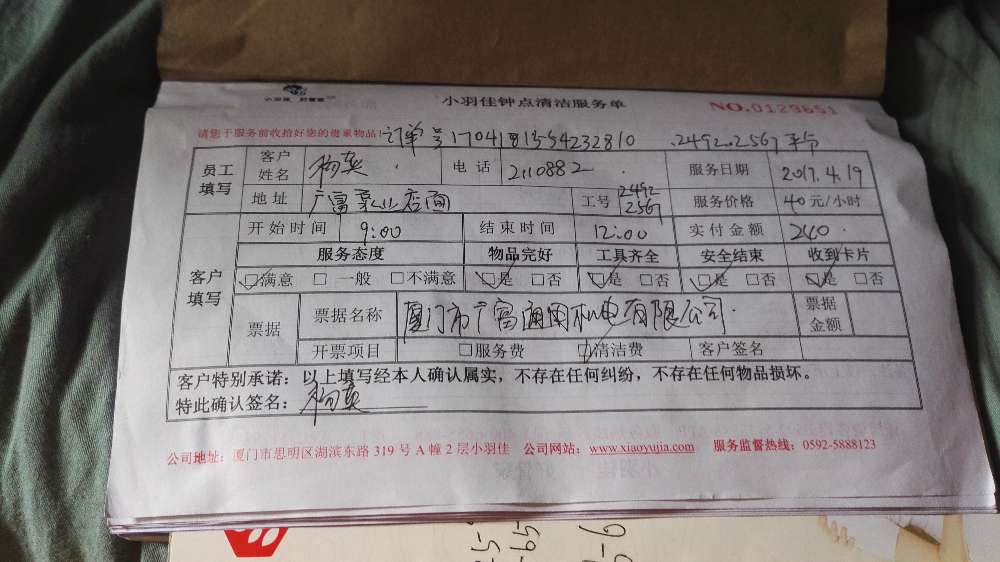 小羽佳钟点清洁服务单
NO.0129651
请您于服务前收拾好您的贵重物品!订单号1704181554232810 .2492.2567
员工填写 客户姓名 电话 2110882 服务日期 2017.4.19
地址 广富 店面 工号 2492 2567 服务价格 40元/小时
客户填写 开始时间 9:00 结束时间 12:00 实付金额 240
服务态度 物品完好 工具齐全 安全结束 收到卡片
☑满意 □一般 □不满意 ☑是 □否 ☑是 □否 ☑是 □否 ☑是 □否
票据 票据名称 厦门市广富通用机电有限公司 票据金额
开票项目 □服务费 ☑清洁费 客户签名
客户特别承诺:以上填写经本人确认属实,不存在任何纠纷,不存在任何物品损坏。
特此确认签名:
公司地址:厦门市思明区湖滨东路 319 号 A 幢 2 层小羽佳 公司网站:www.xiaoyujia.com 服务监督热线:0592-5888123